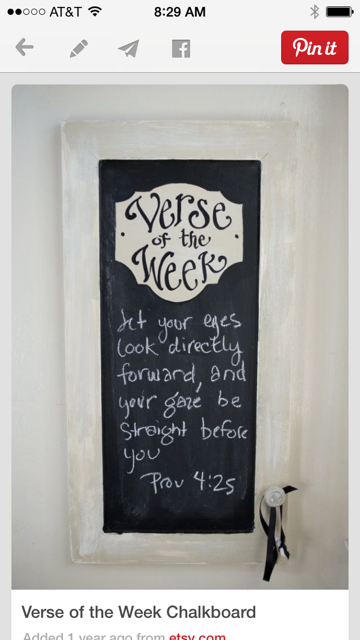 AT&T 8:29 AM
Pin it
Verse
of the
Week
Let your eyes
look directly
forward, and
your gaze be
straight before
you
Prov 4:25
Verse of the Week Chalkboard
Added 1 year ago from etsy.com